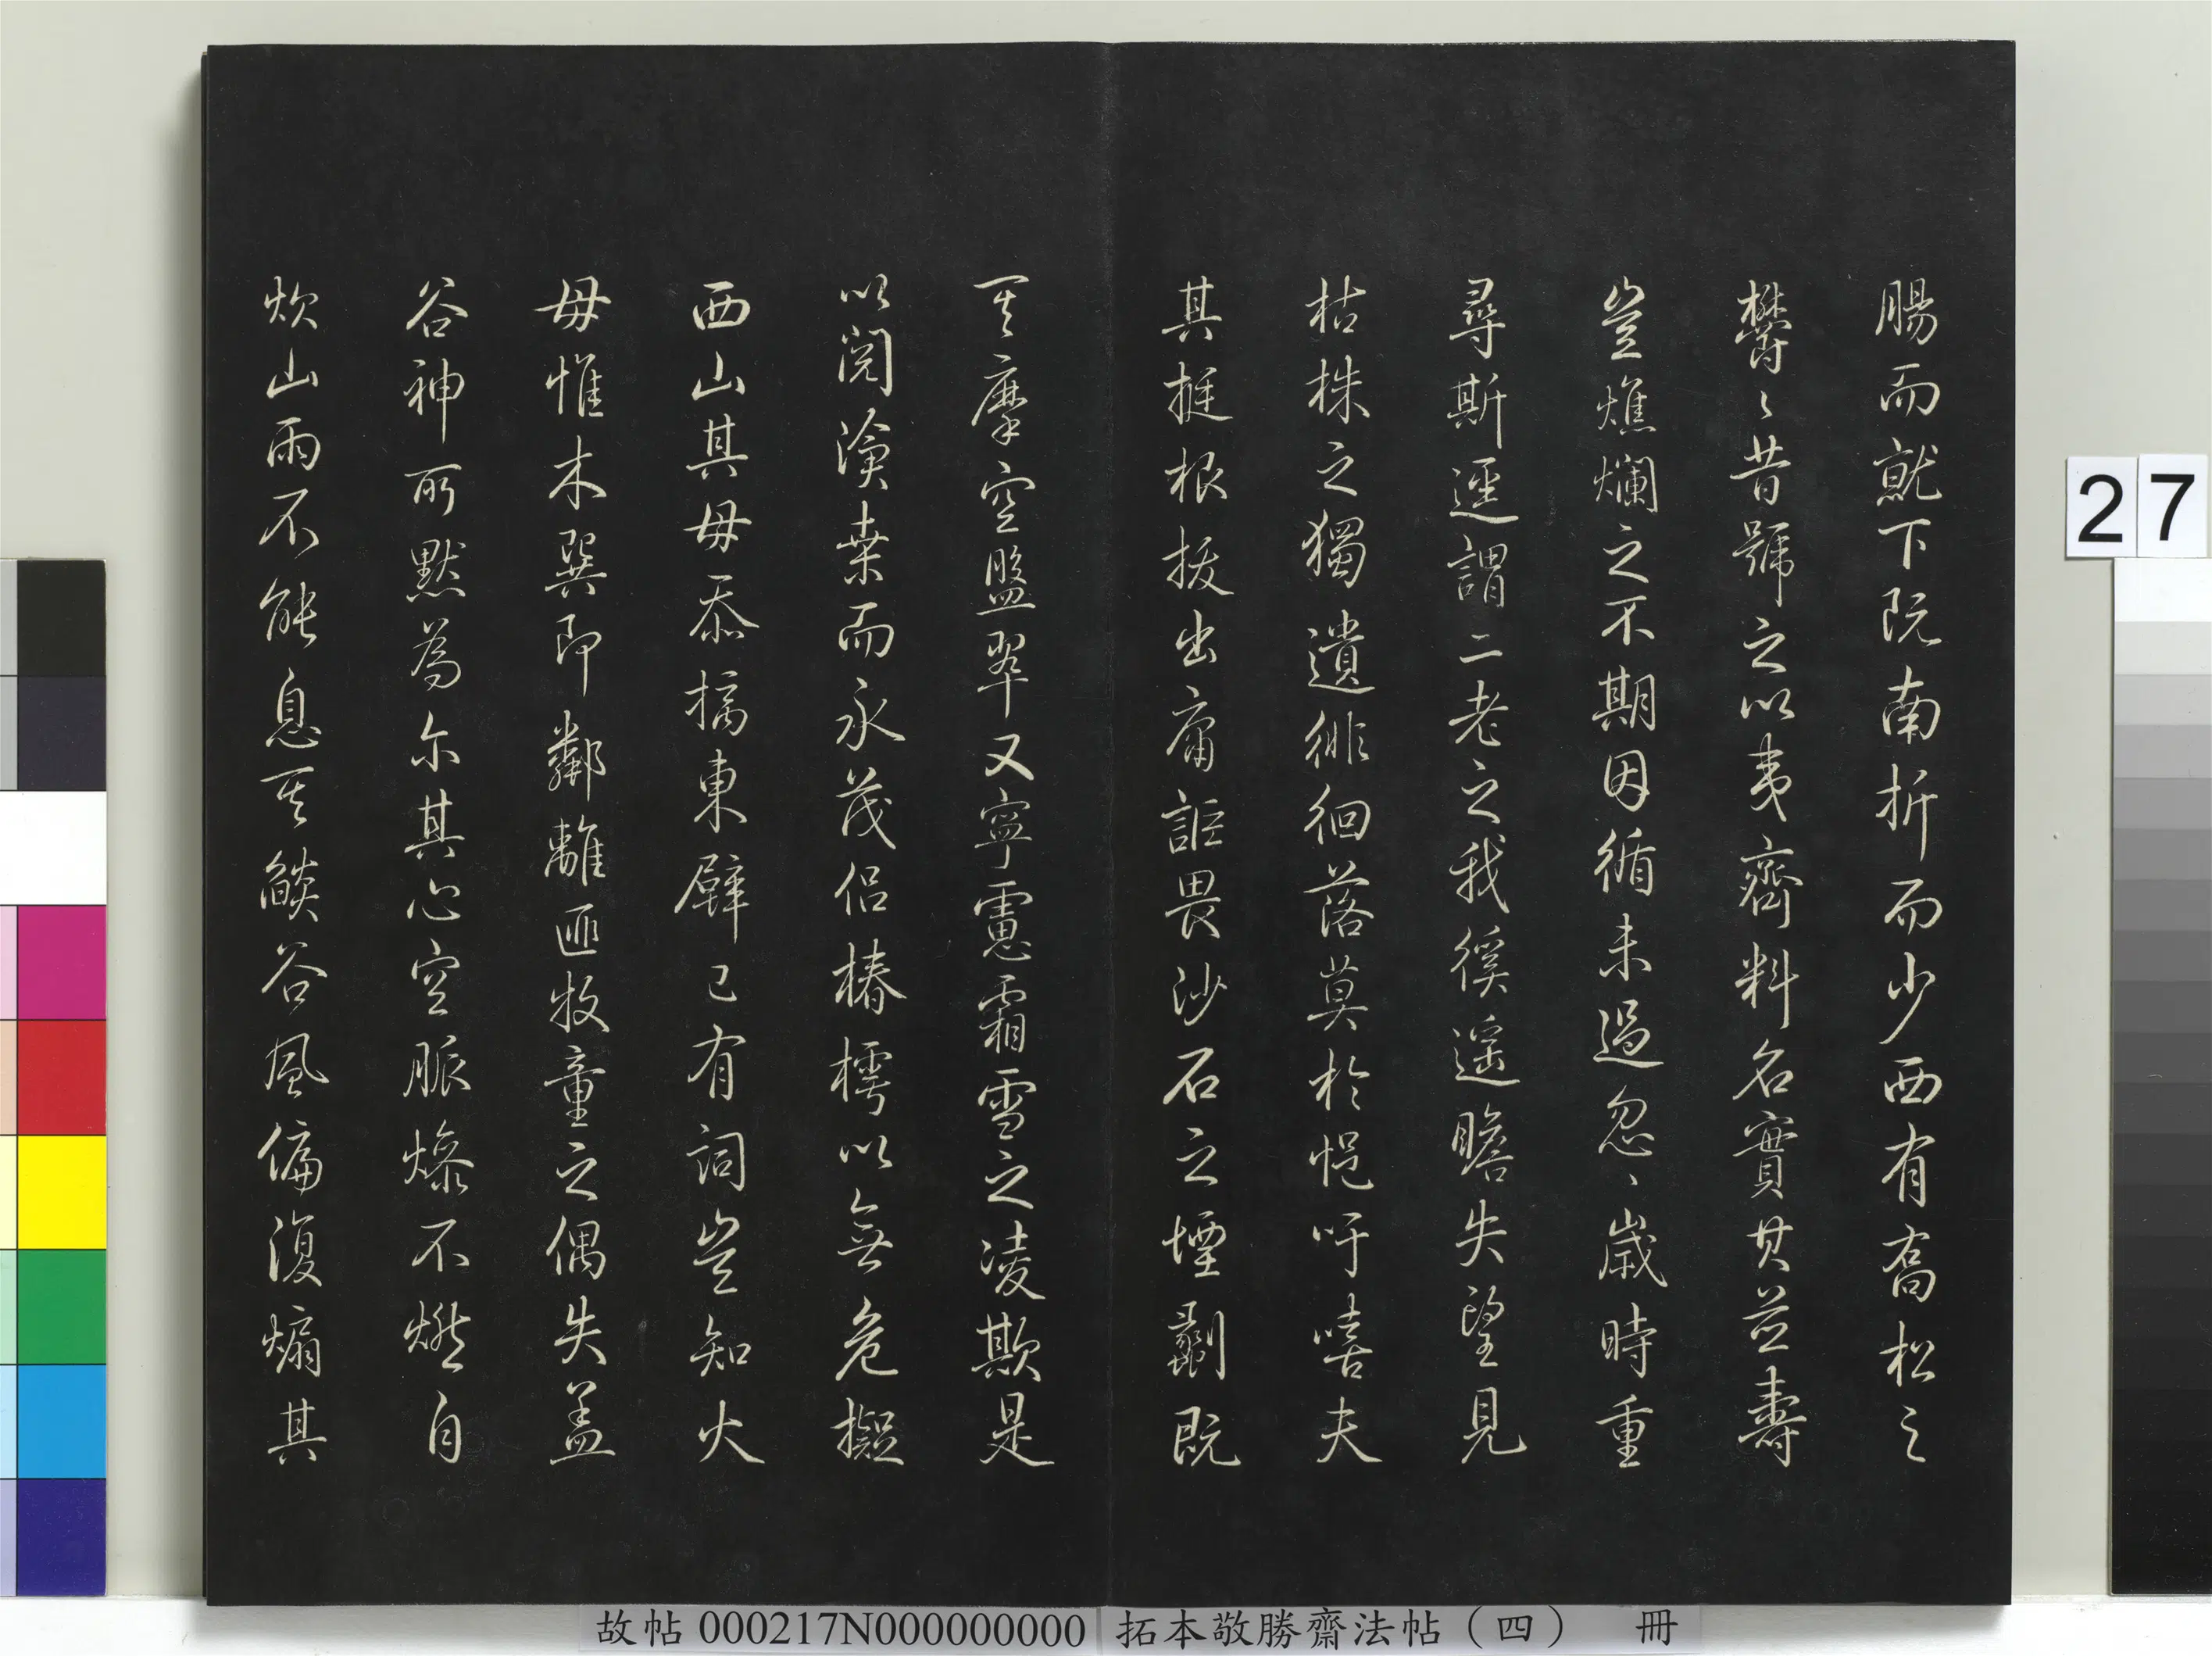 腸而就下阮南折而少西有喬松之
欝〻昔號之以夷齊料名實其並壽
豈燋爛之不期因循未過忽〻歲時重
尋斯逕謂二老之我徯遥瞻失望見
枯株之獨遺徘徊落莫於悒吁嘻夫
其挺根拔出庸詎畏沙石之堙劚既
其摩空盤翠又寧慮霜雪之凌欺是
以閱滄桒而永茂侶椿樗以無危擬
西山其毋忝摛東壁已有詞豈知火
毋惟木巽即鄰離匪牧童之偶失盖
谷神所默為尔其心空脈燥不燃自
炊山雨不能息其燄谷風偏復煽其
27
故帖000217N000000000 拓本敬勝齋法帖（四） 冊